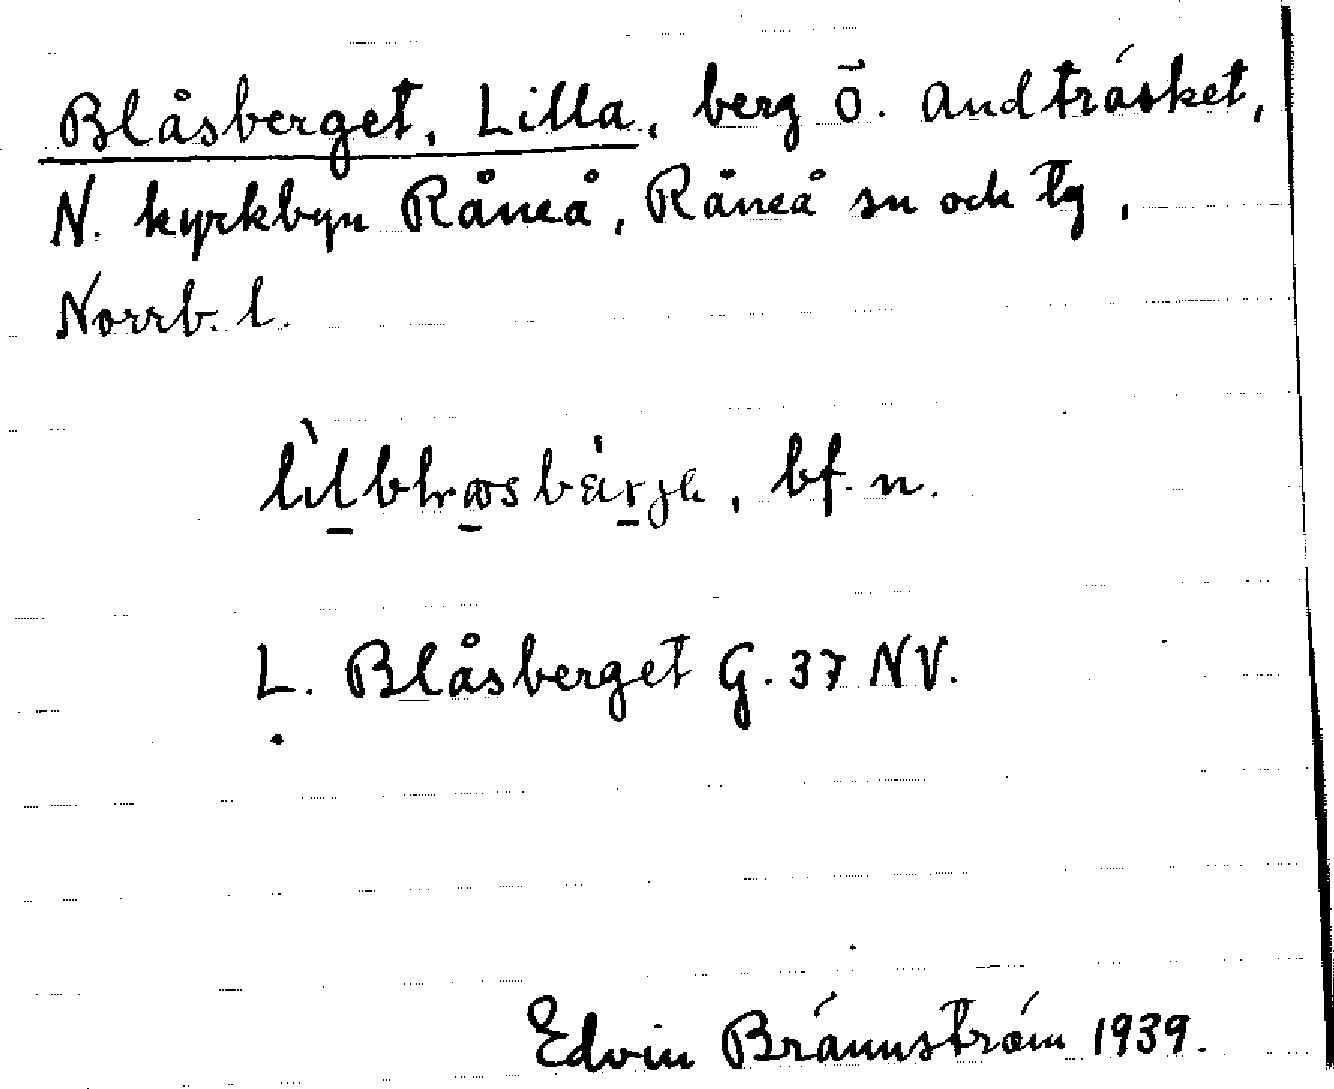 Blåsberget, Lilla, berg ö. Andträsket,
N. kyrkbyn Råneå, Råneå sn och tg,
Norrb. l.
bf. n.
L. Blåsberget G. 37 NV.
Edvin Brännström 1939.